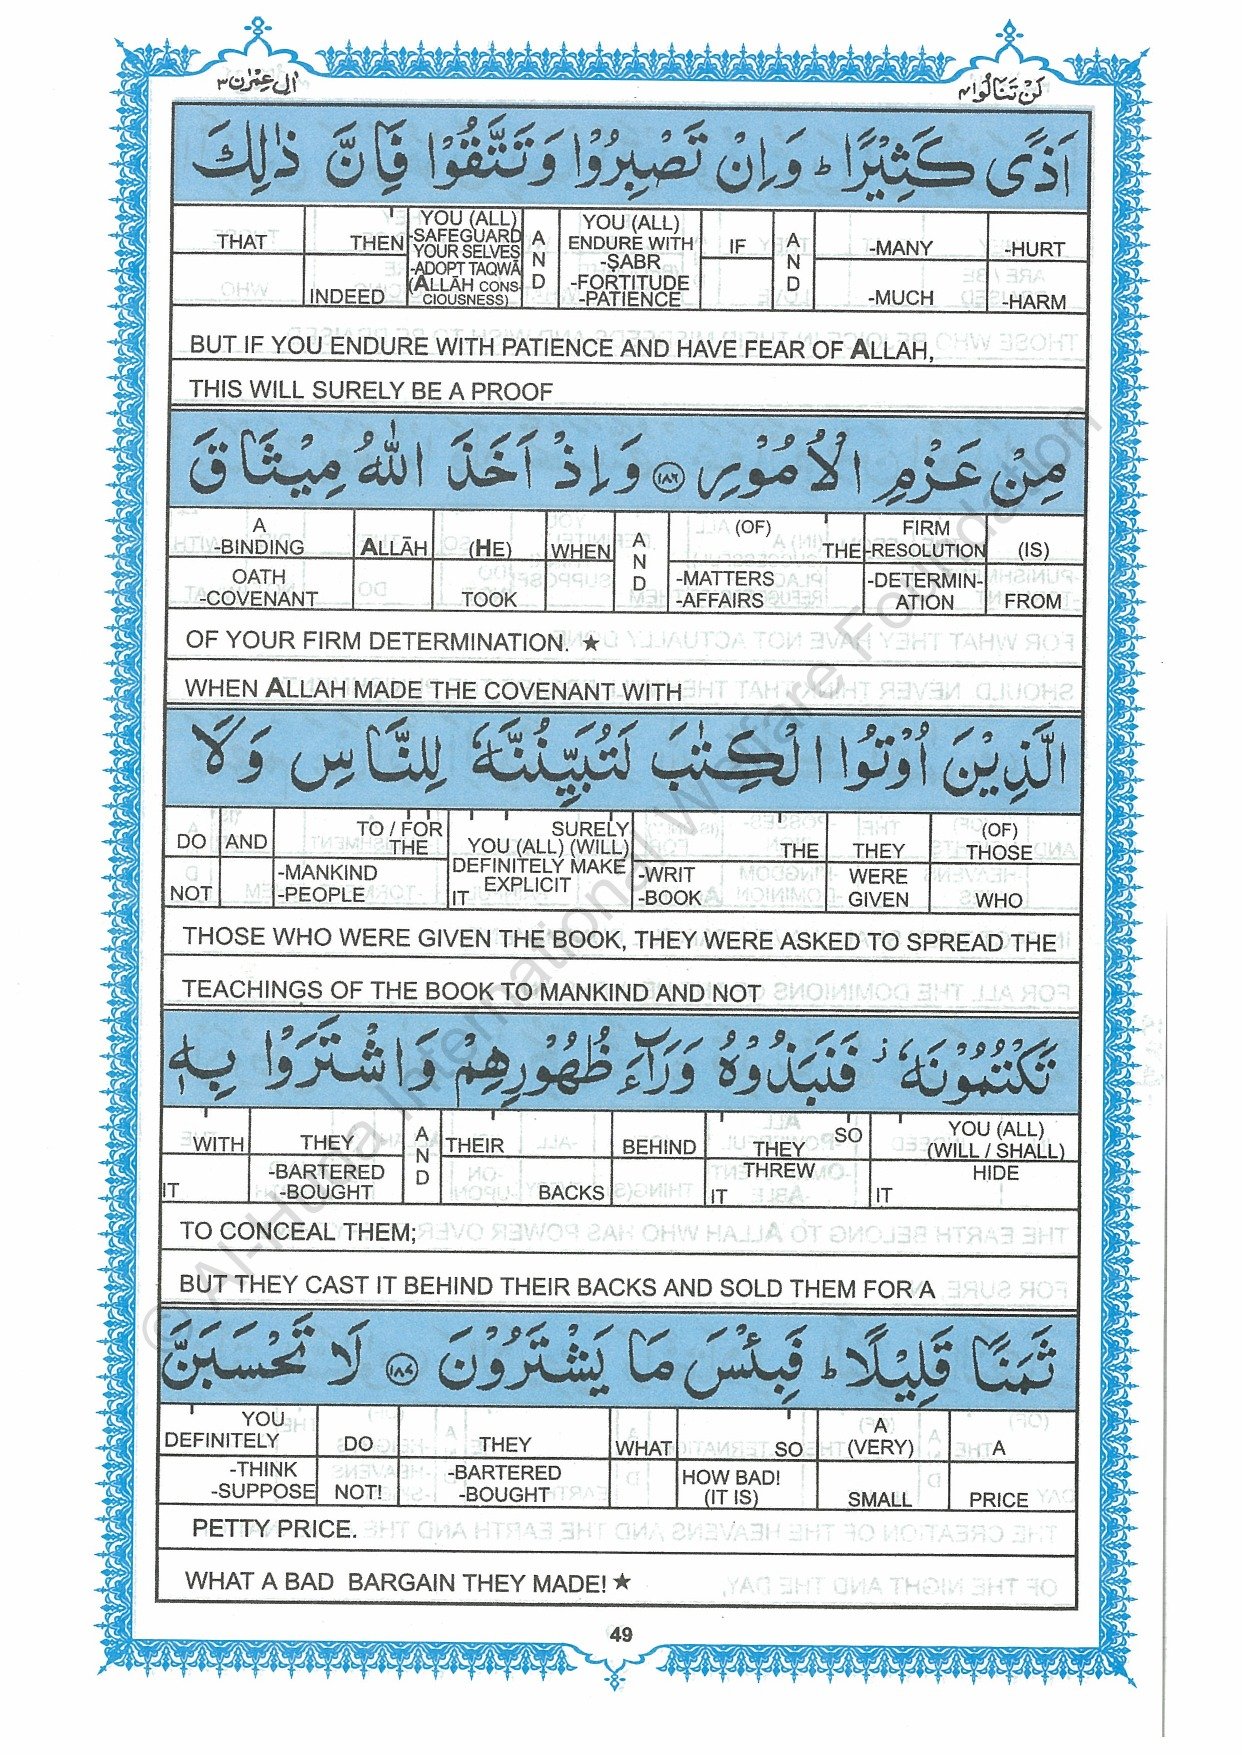 اٰل عِمْرٰن ۳
لَنْ تَنَالُوا ۴
اَذًى كَثِيْرًا ؕ وَاِنْ تَصْبِرُوْا وَتَتَّقُوْا فَاِنَّ ذٰلِكَ
THAT THEN INDEED YOU (ALL) -SAFEGUARD YOUR SELVES -ADOPT TAQWĀ (ALLĀH CONSCIOUSNESS) AND YOU (ALL) ENDURE WITH -ṢABR -FORTITUDE -PATIENCE IF AND -MANY -MUCH -HURT -HARM
BUT IF YOU ENDURE WITH PATIENCE AND HAVE FEAR OF ALLAH,
THIS WILL SURELY BE A PROOF
مِنْ عَزْمِ الْاُمُوْرِ ﴿۱۸۶﴾ وَاِذْ اَخَذَ اللّٰهُ مِيْثَاقَ
A -BINDING OATH -COVENANT ALLĀH (HE) TOOK WHEN AND (OF) THE -MATTERS -AFFAIRS FIRM -RESOLUTION -DETERMINATION (IS) FROM
OF YOUR FIRM DETERMINATION. ★
WHEN ALLAH MADE THE COVENANT WITH
الَّذِيْنَ اُوْتُوا الْكِتٰبَ لَتُبَيِّنُنَّهٗ لِلنَّاسِ وَلَا
DO NOT AND TO / FOR THE -MANKIND -PEOPLE SURELY YOU (ALL) (WILL) DEFINITELY MAKE EXPLICIT IT THE -WRIT -BOOK THEY WERE GIVEN (OF) THOSE WHO
THOSE WHO WERE GIVEN THE BOOK, THEY WERE ASKED TO SPREAD THE
TEACHINGS OF THE BOOK TO MANKIND AND NOT
تَكْتُمُوْنَهٗ ؗ فَنَبَذُوْهُ وَرَآءَ ظُهُوْرِهِمْ وَاشْتَرَوْا بِهٖ
WITH IT THEY -BARTERED -BOUGHT AND THEIR BACKS BEHIND SO THEY THREW IT YOU (ALL) (WILL / SHALL) HIDE IT
TO CONCEAL THEM;
BUT THEY CAST IT BEHIND THEIR BACKS AND SOLD THEM FOR A
ثَمَنًا قَلِيْلًا ؕ فَبِئْسَ مَا يَشْتَرُوْنَ ﴿۱۸۷﴾ لَا تَحْسَبَنَّ
YOU DEFINITELY -THINK -SUPPOSE DO NOT! THEY -BARTERED -BOUGHT WHAT SO HOW BAD! (IT IS) A (VERY) SMALL A PRICE
PETTY PRICE.
WHAT A BAD BARGAIN THEY MADE! ★
49
© Al-Huda International Welfare Foundation